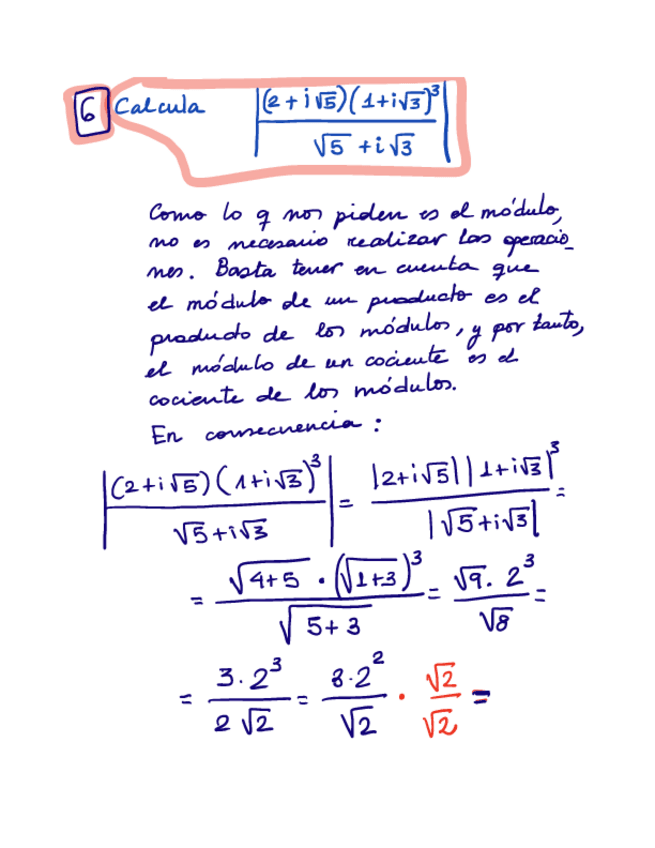 6 Calcula |(2+i√5)(1+i√3)³ / √5+i√3|
Como lo q nos piden es el módulo,
no es necesario realizar las operacio_
nes. Basta tener en cuenta que
el módulo de un producto es el
producto de los módulos, y por tanto,
el módulo de un cociente es el
cociente de los módulos.
En consecuencia:
|(2+i√5)(1+i√3)³ / √5+i√3| = |2+i√5||1+i√3|³ / |√5+i√3| =
= √4+5 · (√1+3)³ / √5+3 = √9 · 2³ / √8 =
= 3·2³ / 2√2 = 3·2² / √2 · √2 / √2 =